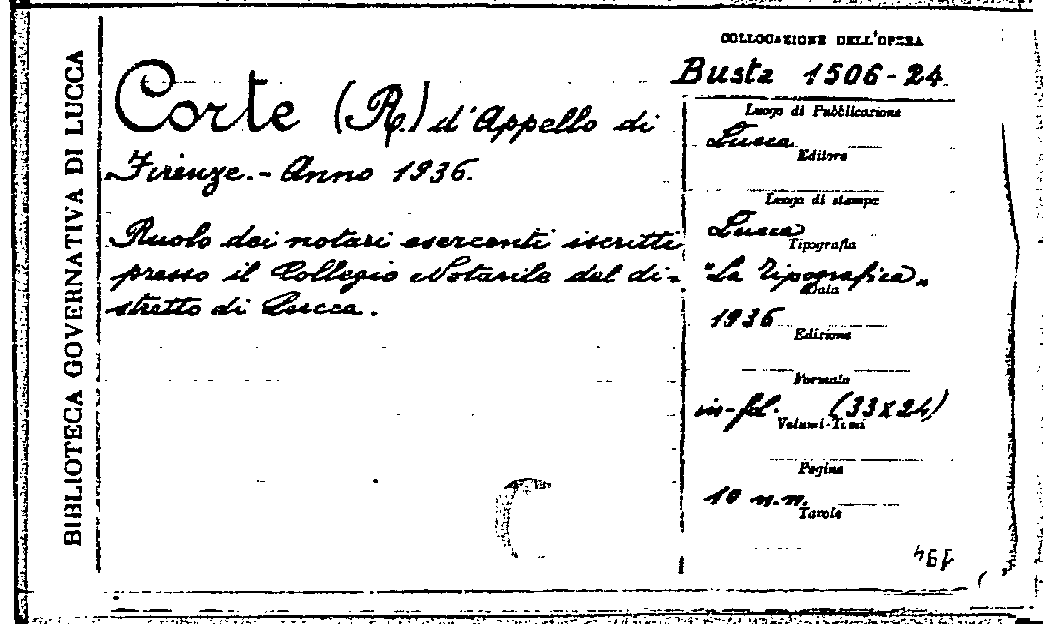 BIBLIOTECA GOVERNATIVA DI LUCCA
Corte (R.) d'Appello di
Firenze. - Anno 1936.
Ruolo dei notari esercenti iscritti
presso il Collegio Notarile del di-
stretto di Lucca.
COLLOCAZIONE DELL'OPERA
Busta 1506-24
Luogo di Pubblicazione
Lucca
Editore
Luogo di stampa
Lucca
Tipografia
"La Tipografica"
Data
1936
Edizione
Formato
in-fol. (33x24)
Volumi-Tomi
Pagine
10 n.n.
Tavole